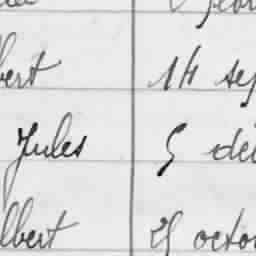 bert 14 sep
Jules 5 déc
lbert 25 octo